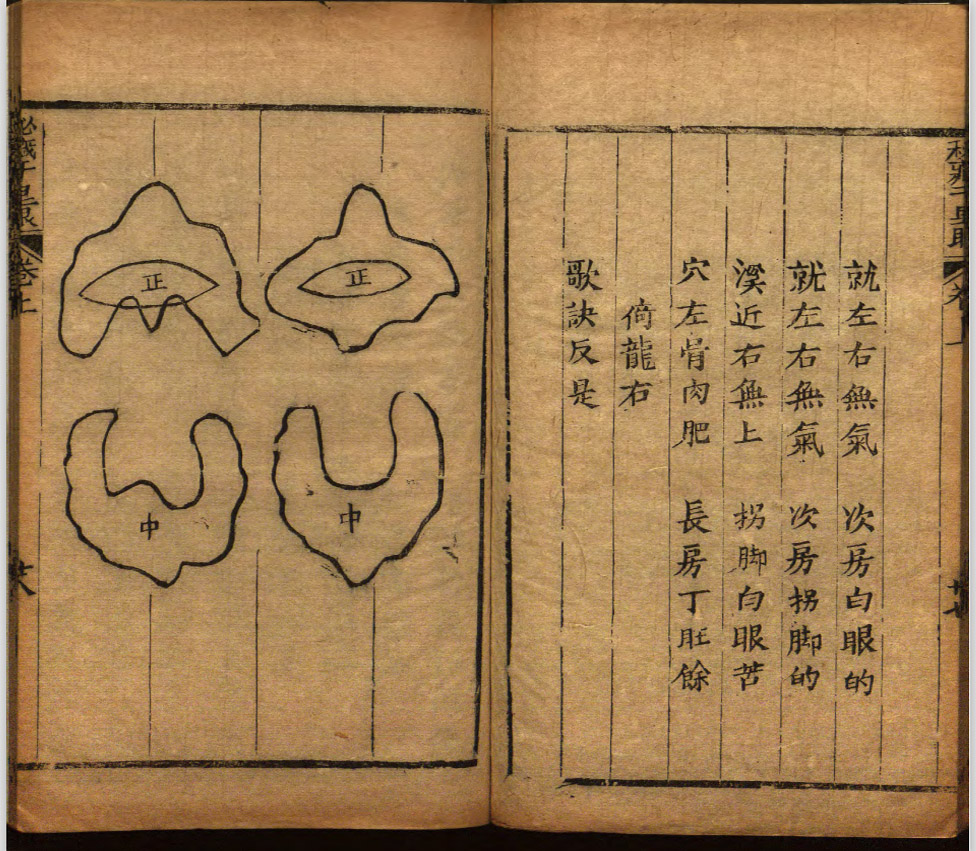 就左右無氣 次房白眼的
就左右無氣 次房拐脚的
溪近右無上 拐脚白眼苦
穴左骨肉肥 長房丁旺餘
倚龍右
歌訣反是
正
正
中
中
卷上